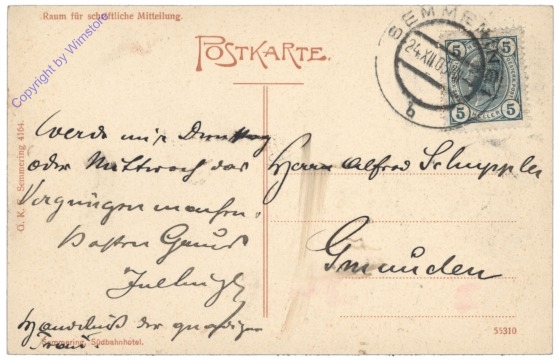 Raum für schriftliche Mitteilung.
POSTKARTE.
SEMMERING
24.XII.05
b
5 5
HELLER
5 5
Werde mir Dienstag
oder Mittwoch das
Vergnügen machen.
Besten Gruß
Handkuß der gnädigen
Frau.
Herrn Alfred Schuppler
Gmunden
O. K. S. Semmering 4164.
Semmering, Südbahnhotel.
55310
Copyright by Wimstore